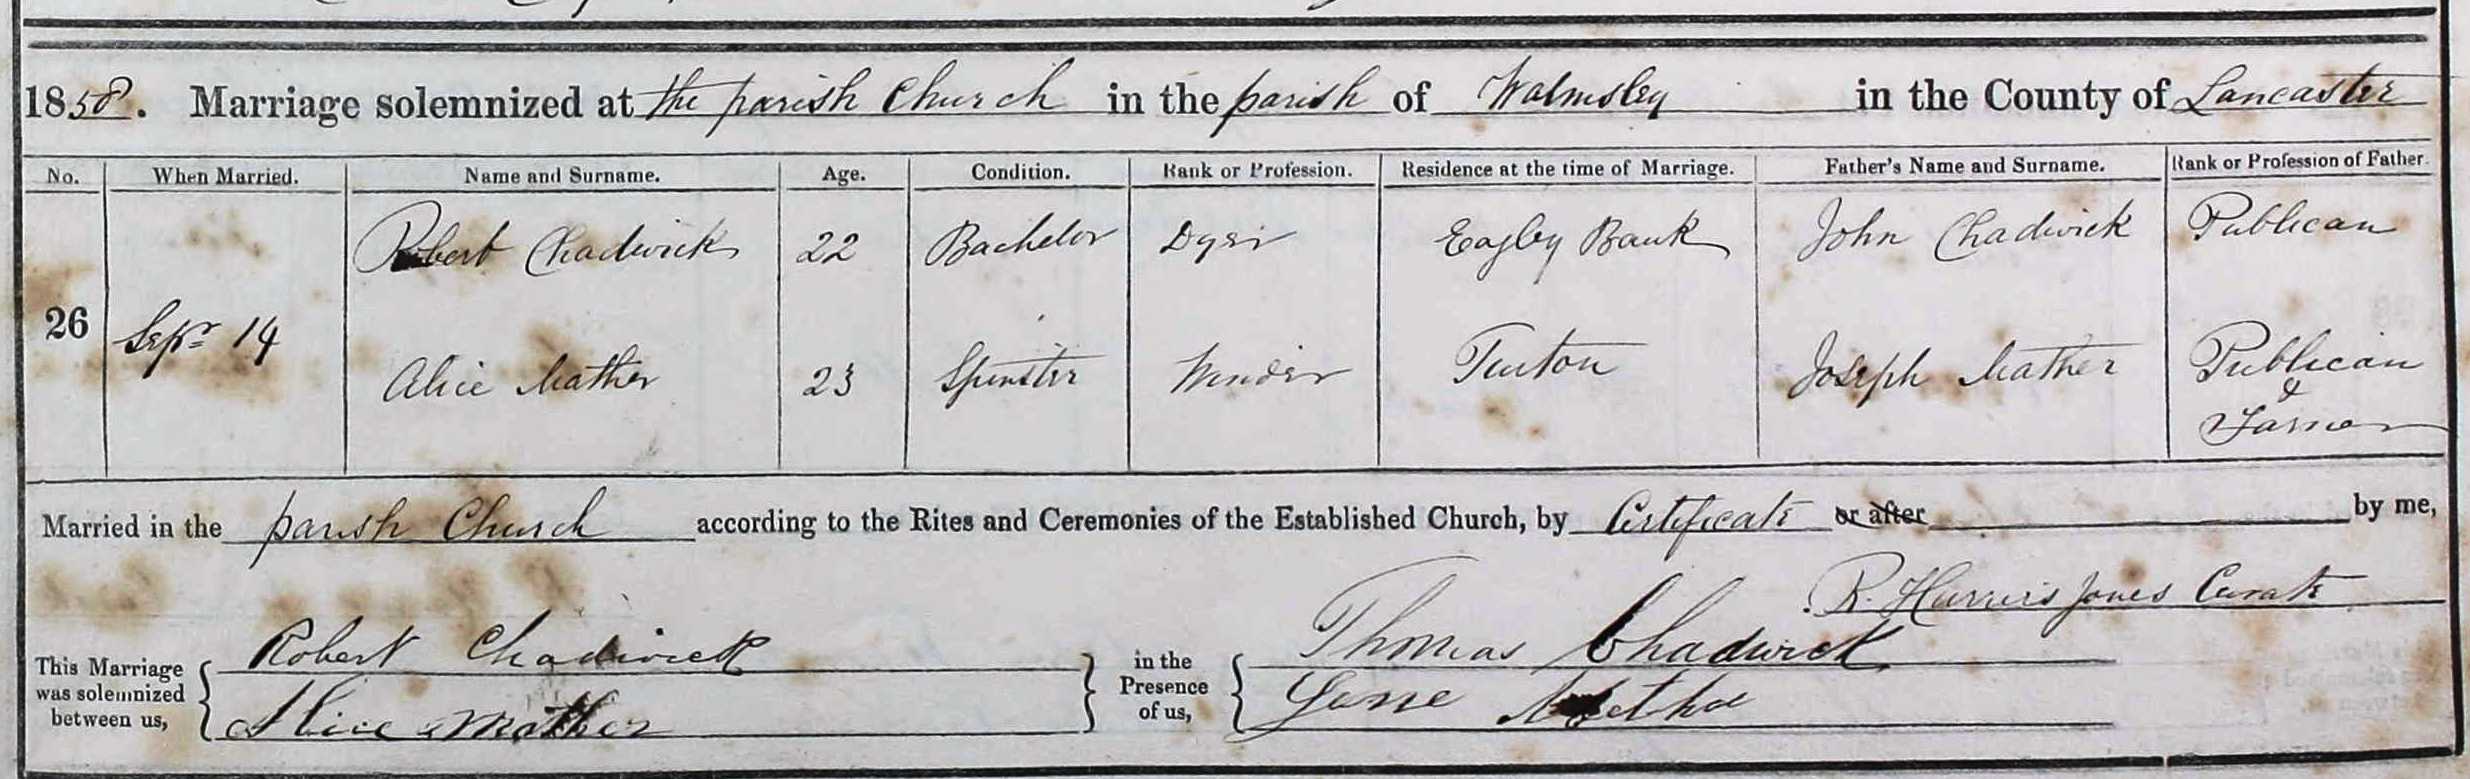 1858. Marriage solemnized at the parish Church in the parish of Walmsley in the County of Lancaster
No. When Married. Name and Surname. Age. Condition. Rank or Profession. Residence at the time of Marriage. Father's Name and Surname. Rank or Profession of Father.
Robert Chadwick 22 Bachelor Dyer Eagley Bank John Chadwick Publican
26 Sepr 14
Alice Mather 23 Spinster Winder Turton Joseph Mather Publican
&
Farmer
Married in the parish Church according to the Rites and Ceremonies of the Established Church, by Certificate or after by me,
R. Harris Jones Curate
This Marriage was solemnized between us,
Robert Chadwick
Alice Mather
in the Presence of us,
Thomas Chadwick
Jane